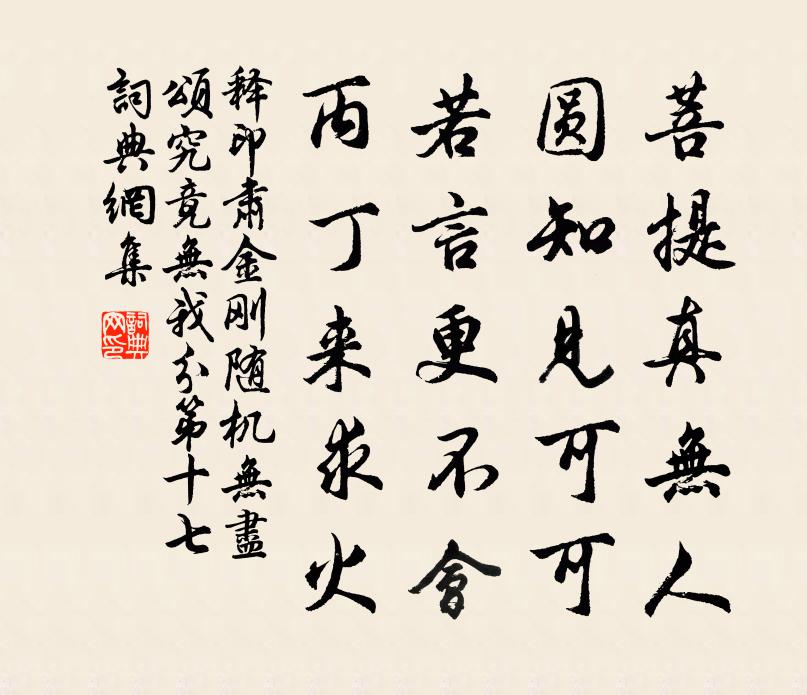 菩提真無人
圆知見可可
若言更不會
丙丁来求火
释印肃金刚随机無盡
頌究竟無我分第十七
詞典網集
詞典网印